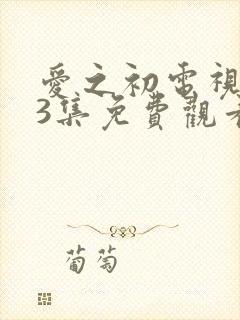 愛之初電視
3集免費觀看
葡萄